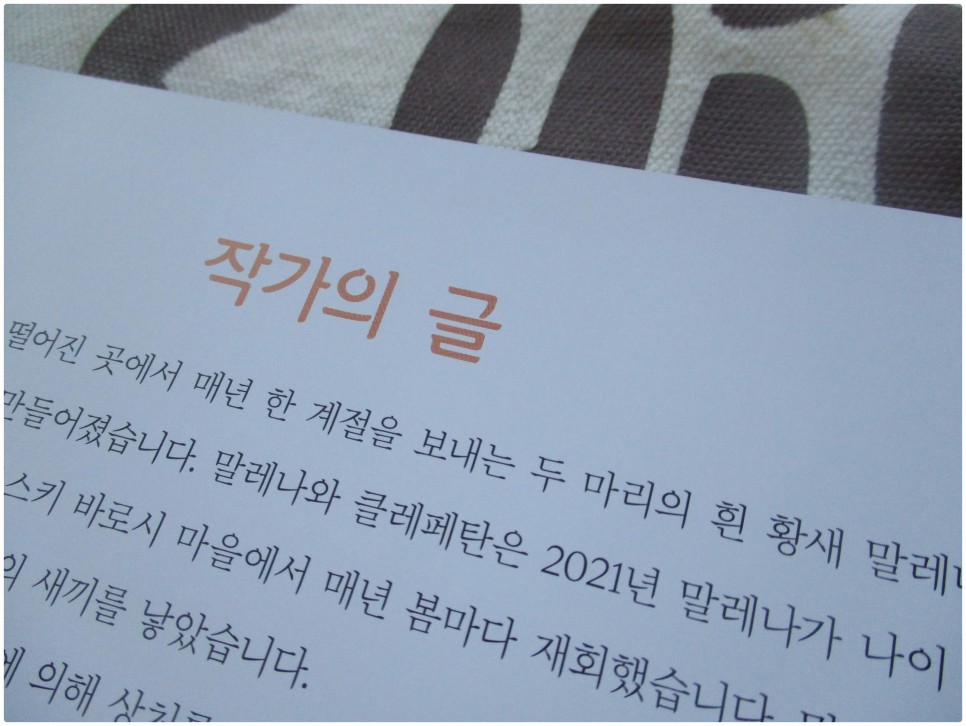 작가의 글
떨어진 곳에서 매년 한 계절을 보내는 두 마리의 흰 황새
만들어졌습니다. 말레나와 클레페탄은 2021년 말레나가 나이
스키 바로시 마을에서 매년 봄마다 재회했습니다.
새끼를 낳았습니다.
의해